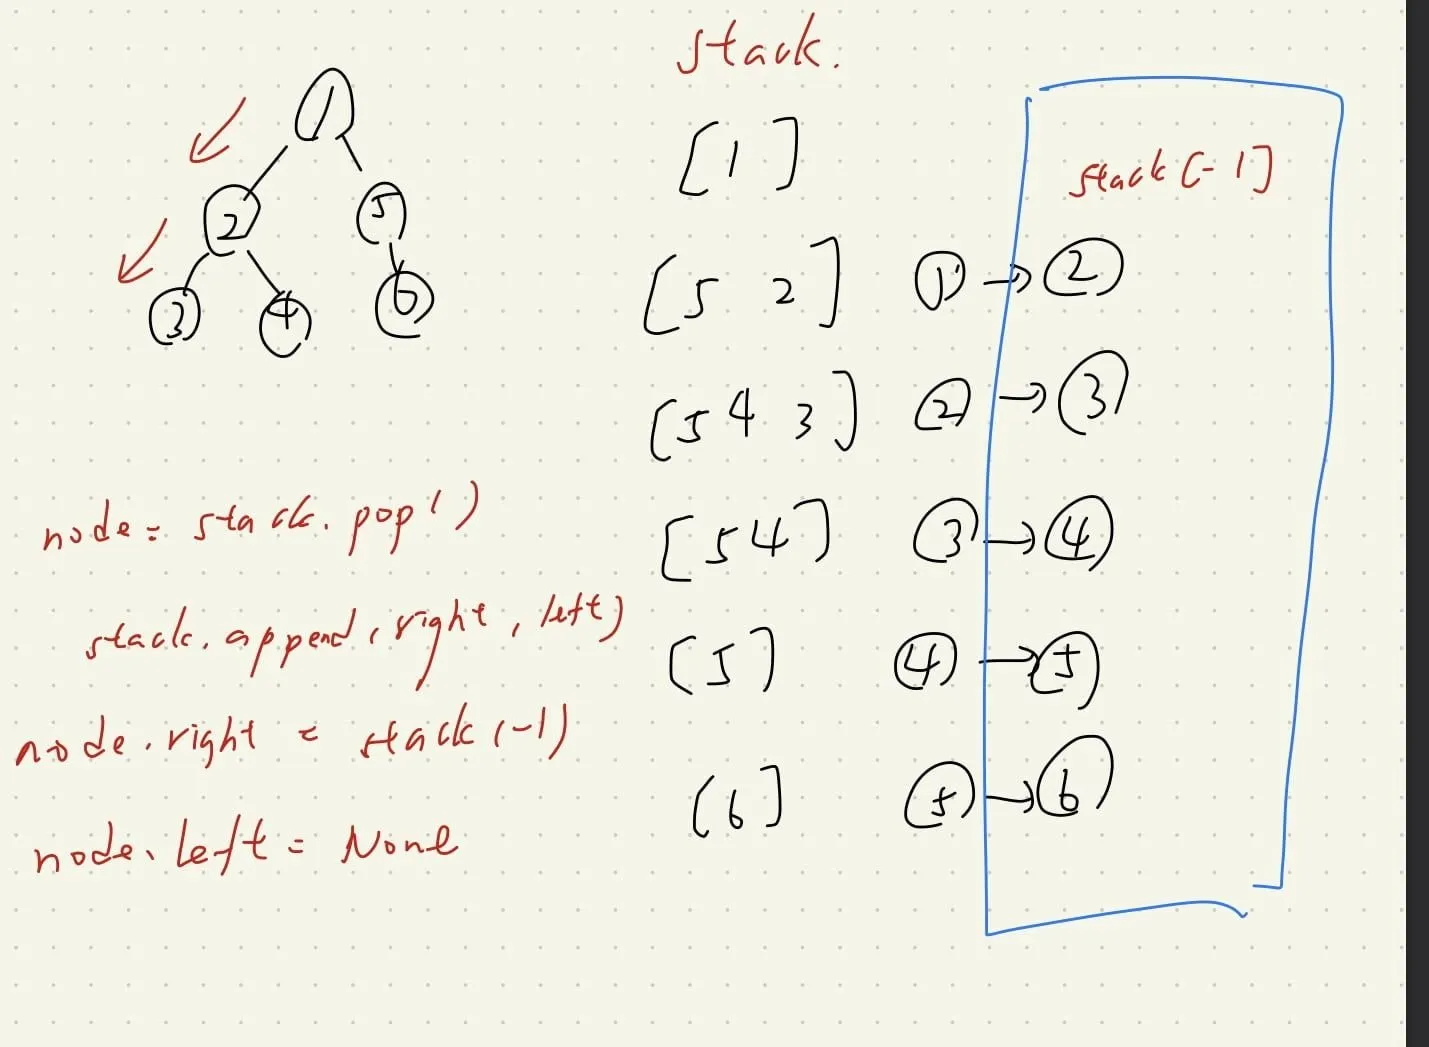 stack.
1
2 5
3 4 6
[1]
stack[-1]
[5 2] 1 → 2
[5 4 3] 2 → 3
[5 4] 3 → 4
[5] 4 → 5
[6] 5 → 6
node = stack.pop()
stack.append(right, left)
node.right = stack(-1)
node.left = None